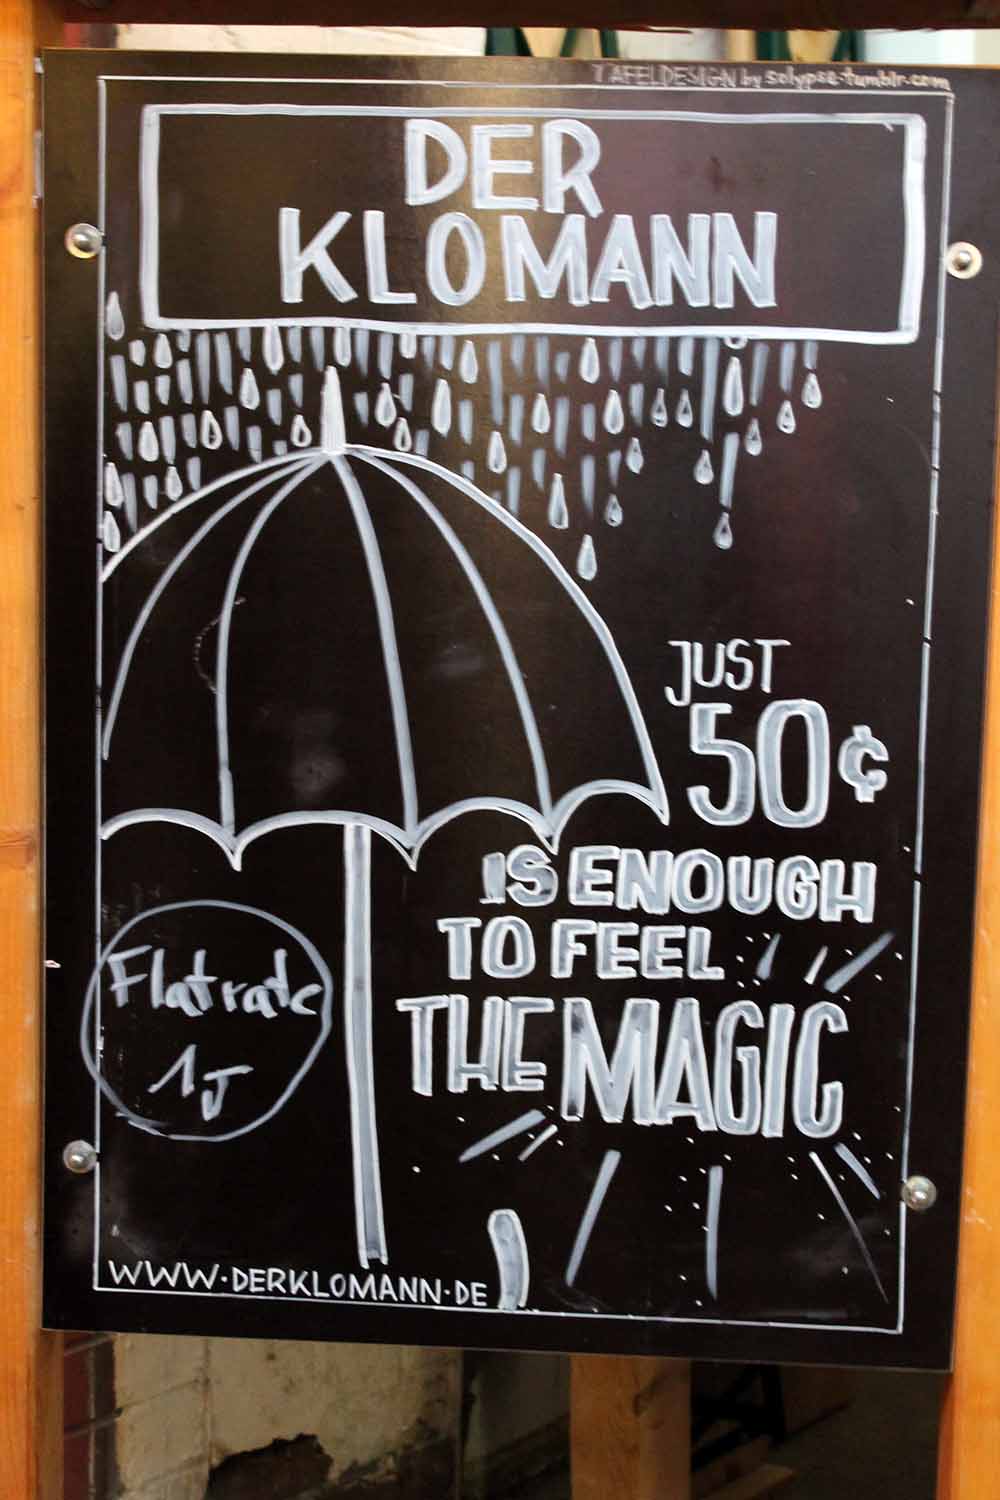 TAFELDESIGN by solypse.tumblr.com
DER
KLOMANN
JUST
50¢
IS ENOUGH
TO FEEL
THE MAGIC
Flatrate
1J
WWW.DERKLOMANN.DE